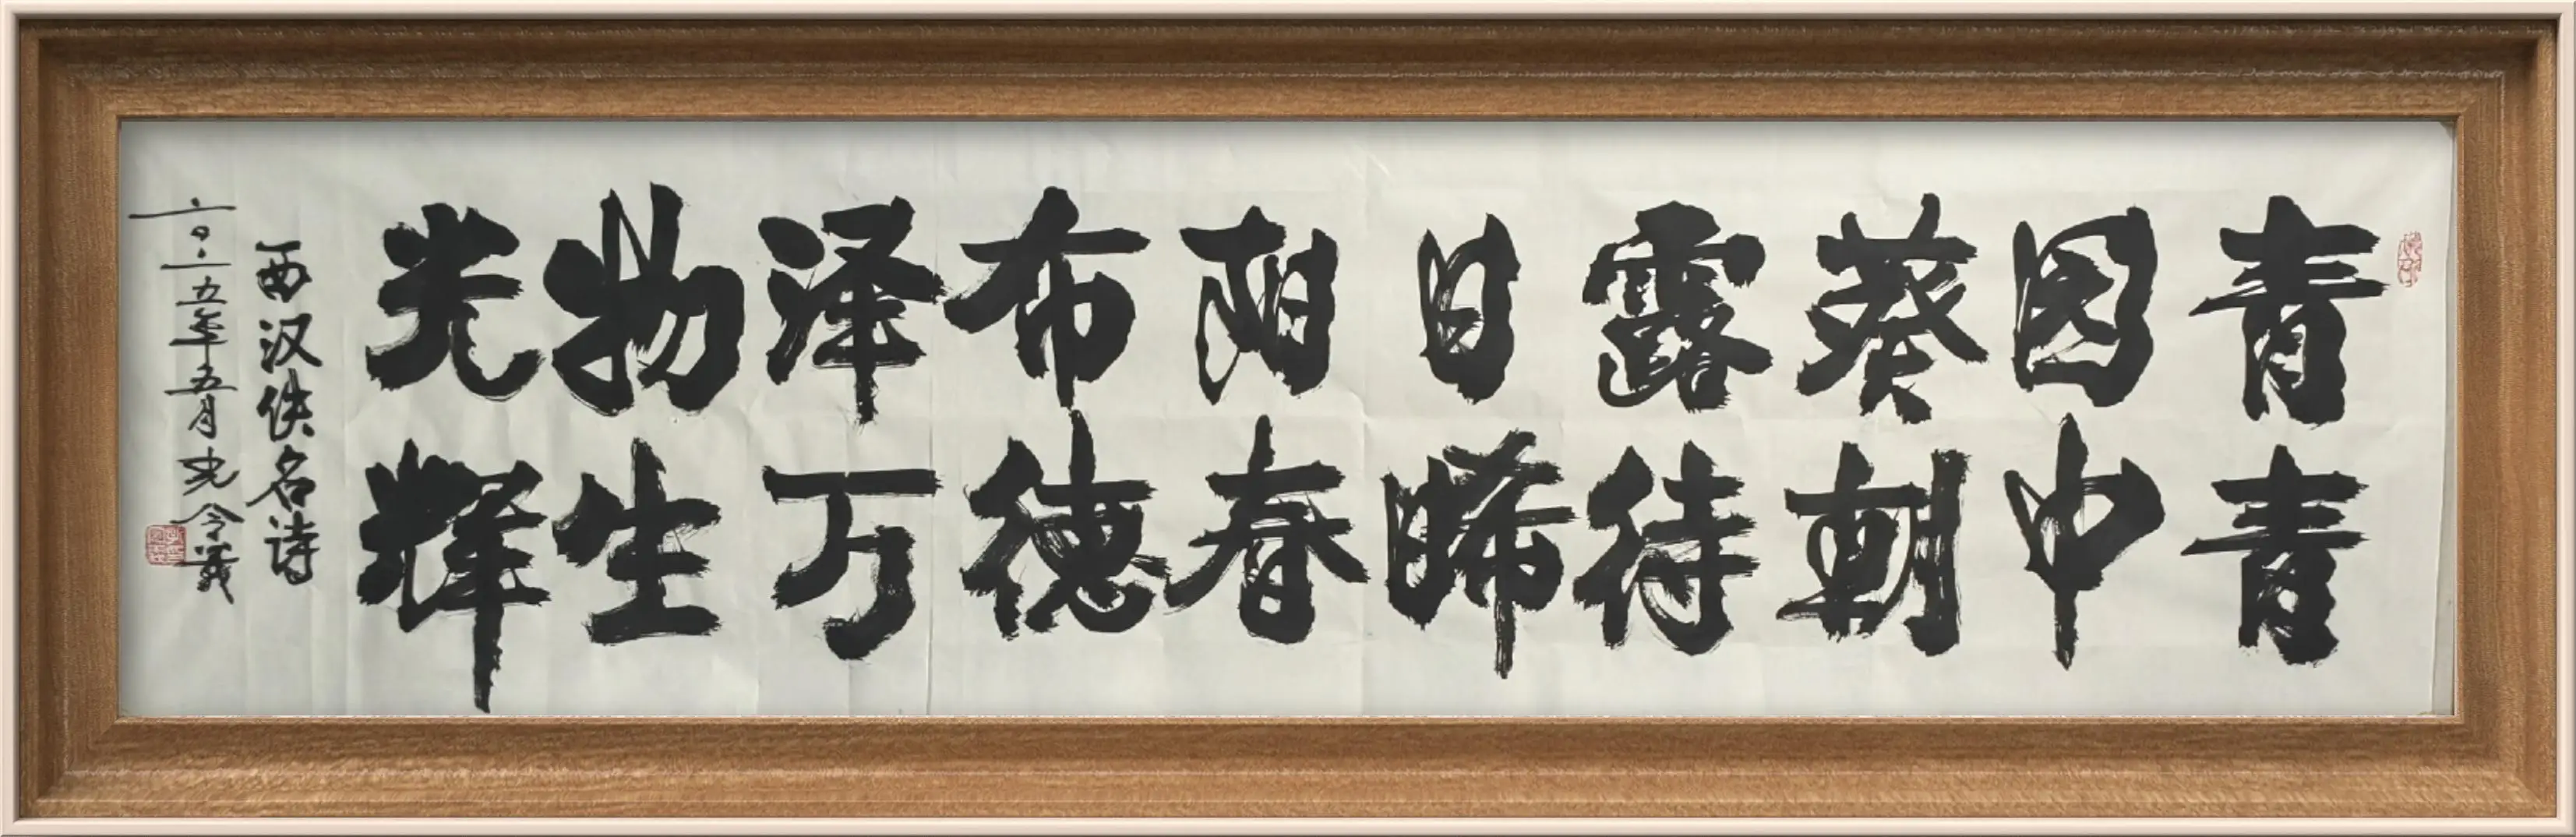 青青
园中
葵朝
露待
日晞
阳春
布德
泽万
物生
光辉
西汉佚名诗
二〇一五年五月